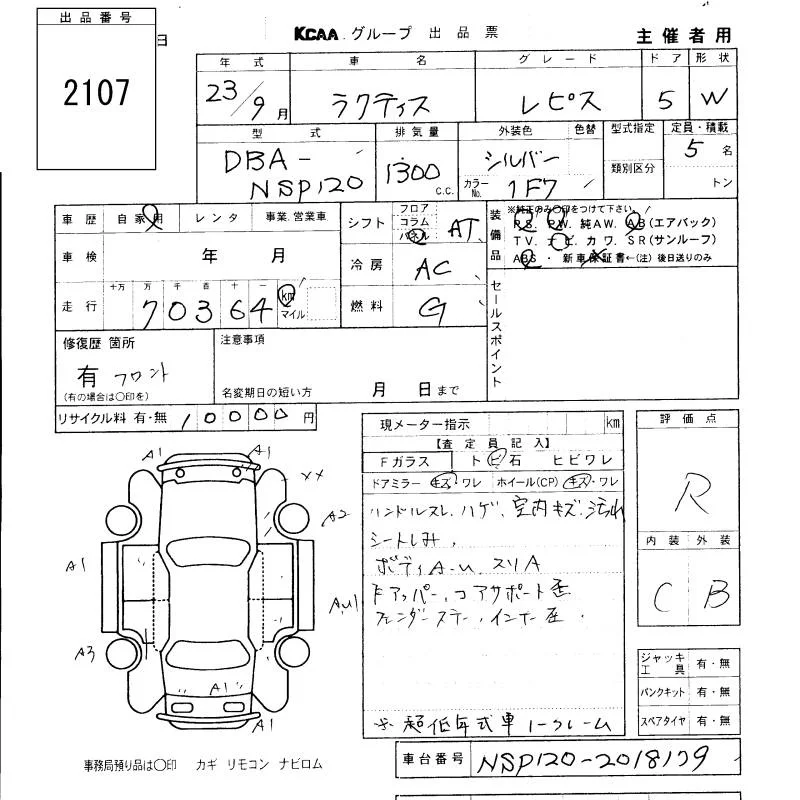 出品番号
2107
日
KCAA グループ 出品票
主催者用
年式 車名 グレード ドア 形状
23/9月 ラクティス レピス 5 W
型式 排気量 外装色 色替 型式指定 定員・積載
DBA-NSP120 1300 C.C. シルバー 5名
カラーNo. 1F7 類別区分 トン
車歴 自家用 レンタ 事業.営業車
シフト フロア コラム パネル AT
装備品
※純正のみ〇印をつけて下さい。
P.S. P.W. 純A.W. A.B(エアバック)
T.V. ナビ. カワ. S.R(サンルーフ)
ABS ・ 新車保証書←(注)後日送りのみ
車検 年 月
冷房 AC
走行 十万 万 千 百 十 一 70364 km マイル
燃料 G
セールスポイント
修復歴 箇所
有 フロント
(有の場合は〇印を)
注意事項
名変期日の短い方 月 日まで
リサイクル料 有・無 10000円
現メーター指示 km
【査定員記入】
Fガラス ト ビ 石 ヒビワレ
ドアミラー キズ・ワレ ホイール(CP) キズ・ワレ
ハンドルスレ、ハゲ、室内キズ、汚れ
シートしみ、
ボディA-u、スリA
Fアッパー、コアサポート歪
フェンダーステー、インナー歪.
超低年式車 1-クレーム
評価点
R
内装 外装
C B
ジャッキ工具 有・無
パンクキット 有・無
スペアタイヤ 有・無
A1
A1
××
A2
A1
Au1
A3
A1
A1
A1
事務局預り品は〇印 カギ リモコン ナビロム
車台番号 NSP120-2018179